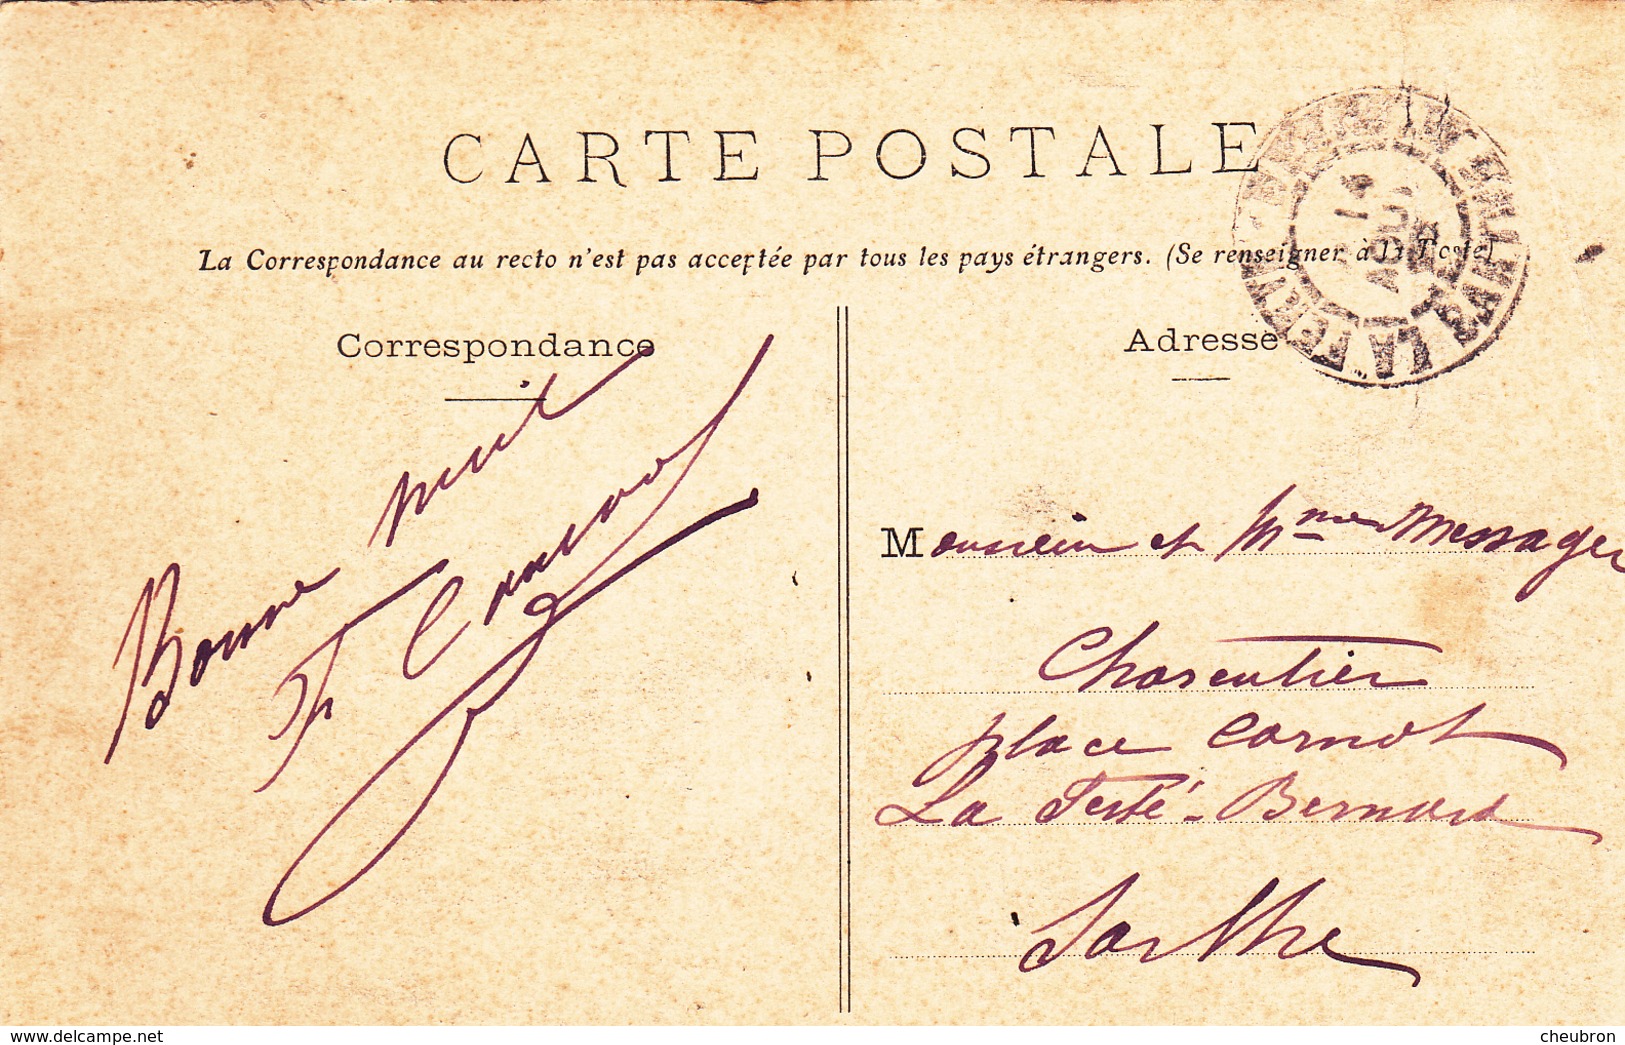 CARTE POSTALE
La Correspondance au recto n'est pas acceptée par tous les pays étrangers. (Se renseigner à la Poste)
Correspondance
Bonne nuit
Adresse
Monsieur et Mme Messager
Charentier
place Carnot
La Ferté-Bernard
Sarthe
14
AOUT
LA FERTÉ
delcampe.net
cheubron